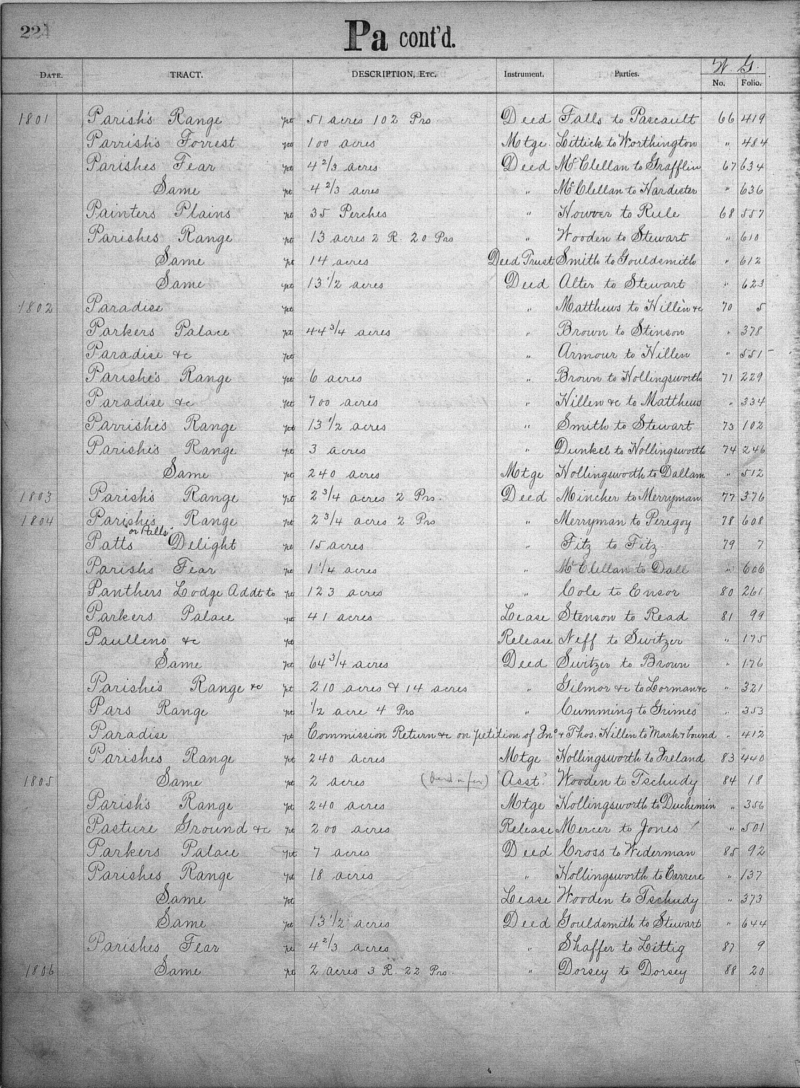 221
Pa cont'd.
W G.
DATE. TRACT. DESCRIPTION, ETC. Instrument. Parties. No. Folio.
1801 Parish's Range pt 51 acres 102 Prs Deed Falls to Pascault 66 419
Parrish's Forrest pt 100 acres Mtge Littick to Worthington " 484
Parishes Fear pt 4 2/3 acres Deed McClellan to Grafflin 67 634
Same pt 4 2/3 acres " McClellan to Hardester " 636
Painters Plains pt 35 Perches " Howver to Rule 68 557
Parishes Range pt 13 acres 2 R. 20 Prs " Wooden to Stewart " 610
Same pt 14 acres Deed Trust Smith to Gouldsmith " 612
Same pt 13 1/2 acres Deed Alter to Stewart " 623
1802 Paradise pt " Matthews to Hillen &c 70 5
Parkers Palace pt 44 3/4 acres " Brown to Stinson " 378
Paradise &c pt " Armour to Hillen " 551
Parishe's Range pt 6 acres " Brown to Hollingsworth 71 229
Paradise &c pt 700 acres " Hillen &c to Matthews " 334
Parrishes Range pt 13 1/2 acres " Smith to Stewart 73 102
Parishe's Range pt 3 acres " Dunkel to Hollingsworth 74 246
Same pt 240 acres Mtge Hollingsworth to Dallam " 512
1803 Parish's Range pt 2 3/4 acres 2 Prs. Deed Mincher to Merryman 77 376
1804 Parishe's Range pt 2 3/4 acres 2 Prs " Merryman to Peregoy 78 608
Patts "or Pitts" Delight pt 15 acres " Fitz to Fitz 79 7
Parishs Fear pt 1 1/4 acres " McClellan to Dall " 606
Panthers Lodge Addt to pt 123 acres " Cole to Ensor 80 261
Parkers Palace pt 41 acres Lease Stenson to Read 81 99
Paulleno &c pt Release Neff to Switzer " 175
Same pt 64 3/4 acres Deed Switzer to Brown " 176
Parishe's Range &c pt 210 acres & 14 acres " Gilmor &c to Lorman &c " 321
Pars Range pt 1/2 acre 4 Prs " Cumming to Grimes " 353
Paradise pt Commission Return &c on petition of Jno & Thos. Hillen to Mark & bound " 412
Parishes Range pt 240 acres Mtge Hollingsworth to Ireland 83 440
1805 Same pt 2 acres Asst. Wooden to Tschudy 84 18
Parish's Range pt 240 acres Mtge Hollingsworth to Duchemin " 356
Pasture Ground &c pt 200 acres Release Mercer to Jones " 501
Parkers Palace pt 7 acres Deed Cross to Widerman 85 92
Parishes Range pt 18 acres " Hollingsworth to Carrere " 137
Same pt Lease Wooden to Tschudy " 373
Same pt 13 1/2 acres Deed Gouldsmith to Stewart " 644
Parishes Fear pt 4 2/3 acres " Shaffer to Littig 87 9
1806 Same pt 2 acres 3 R. 22 Prs " Dorsey to Dorsey 88 20